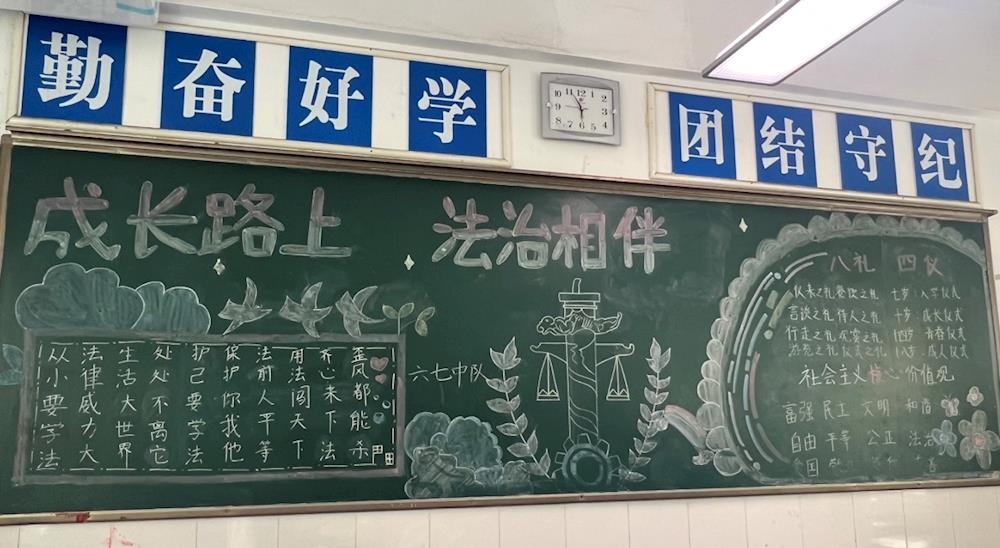 勤奋好学
团结守纪
成长路上 法治相伴
从小要学法
法律威力大
生活大世界
处处不离它
护己要学法
保护你我他
法前人平等
用法闯天下
心来下法
风都能杀
六七中队
八礼 四仪
仪表之礼 餐饮之礼 七岁:入学仪式
言谈之礼 待人之礼 十岁:成长仪式
行走之礼 观赏之礼 十四岁:青春仪式
游览之礼 仪式之礼 十八岁:成人仪式
社会主义核心价值观
富强 民主 文明 和谐
自由 平等 公正 法治
国